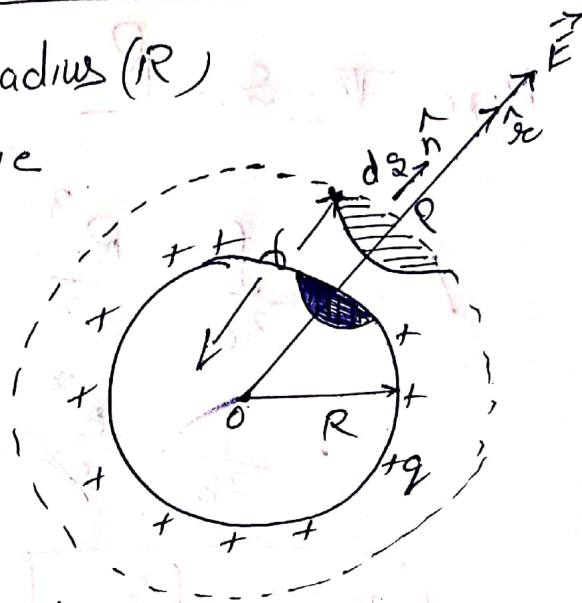 adius (R)
e
E
r̂
n̂
ds
P
r
O
R
+q
+ + + + + + + + + + +